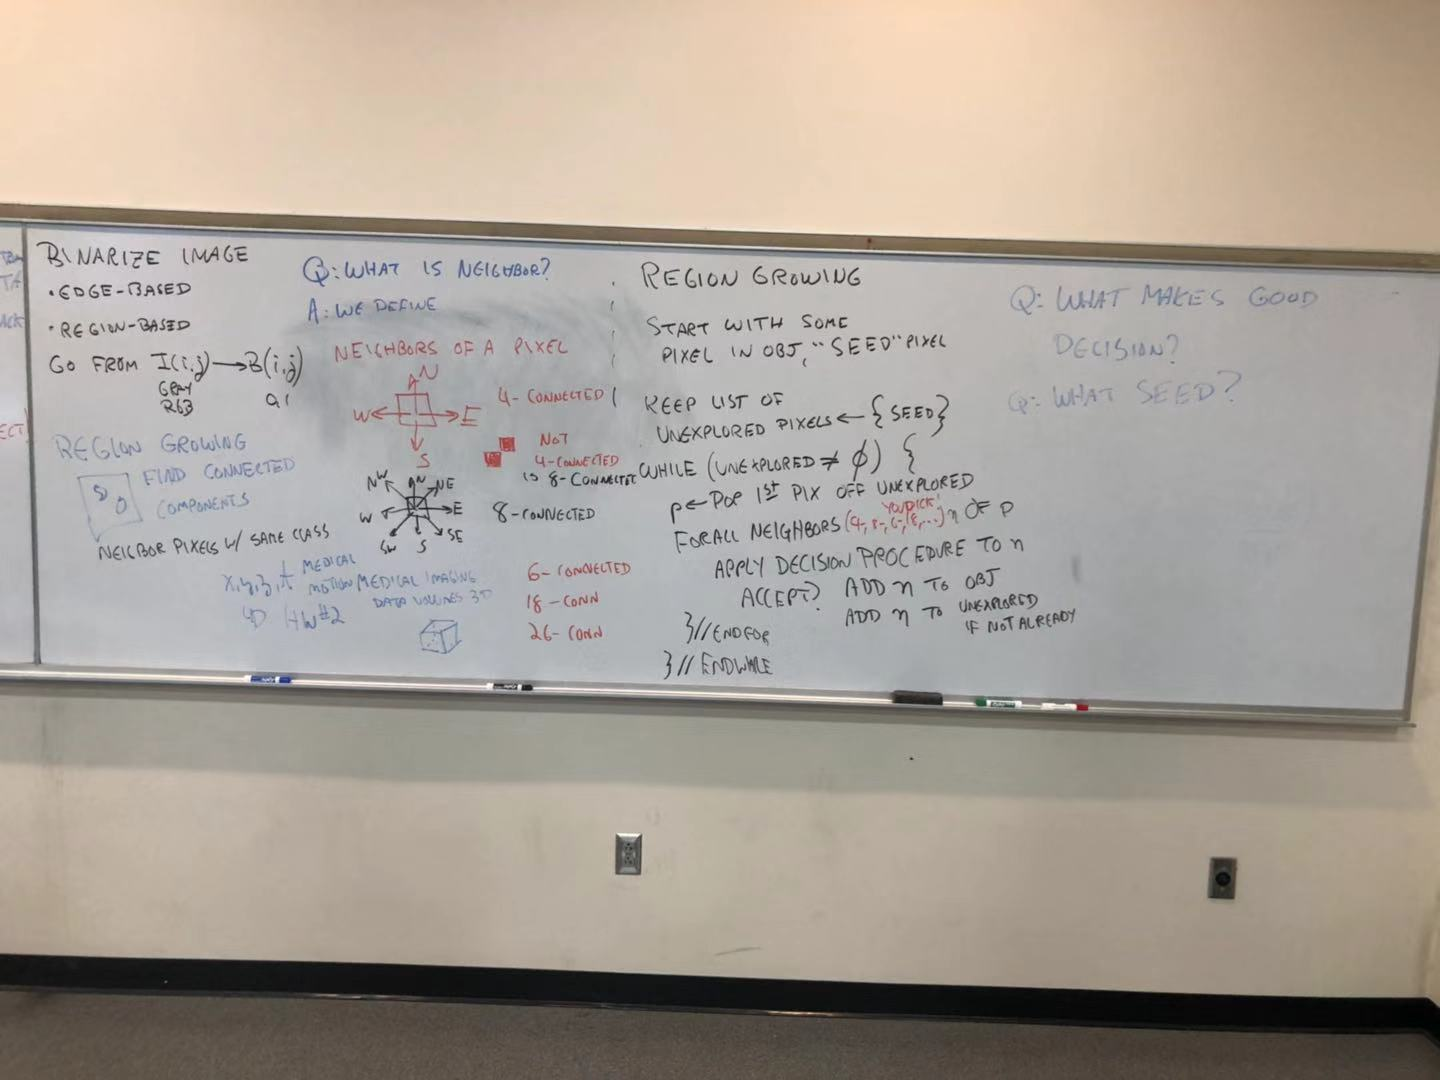 BINARIZE IMAGE
• EDGE-BASED
• REGION-BASED
GO FROM I(i,j) → B(i,j)
GRAY
RGB
0,1
REGION GROWING
FIND CONNECTED
COMPONENTS
NEIGBOR PIXELS W/ SAME CLASS
X,Y,Z,t MEDICAL
MOTION
4D HW#2
MEDICAL IMAGING
DATA VOLUMES 3D
Q: WHAT IS NEIGHBOR?
A: WE DEFINE
NEIGHBORS OF A PIXEL
N
W E
S
4-CONNECTED
NOT
4-CONNECTED
IS 8-CONNECTED
NW N NE
W E
SW S SE
8-CONNECTED
6-CONNECTED
18-CONN
26-CONN
REGION GROWING
START WITH SOME
PIXEL IN OBJ, "SEED" PIXEL
KEEP LIST OF
UNEXPLORED PIXELS ← {SEED}
WHILE (UNEXPLORED ≠ ϕ) {
p ← POP 1ST PIX OFF UNEXPLORED
YOU PICK!
FOR ALL NEIGHBORS (4-, 8-, 6-, 18, ...) n OF P
APPLY DECISION PROCEDURE TO n
ACCEPT? ADD n TO OBJ
ADD n TO UNEXPLORED
IF NOT ALREADY
}//ENDFOR
}//ENDWHILE
Q: WHAT MAKES GOOD
DECISION?
Q: WHAT SEED?